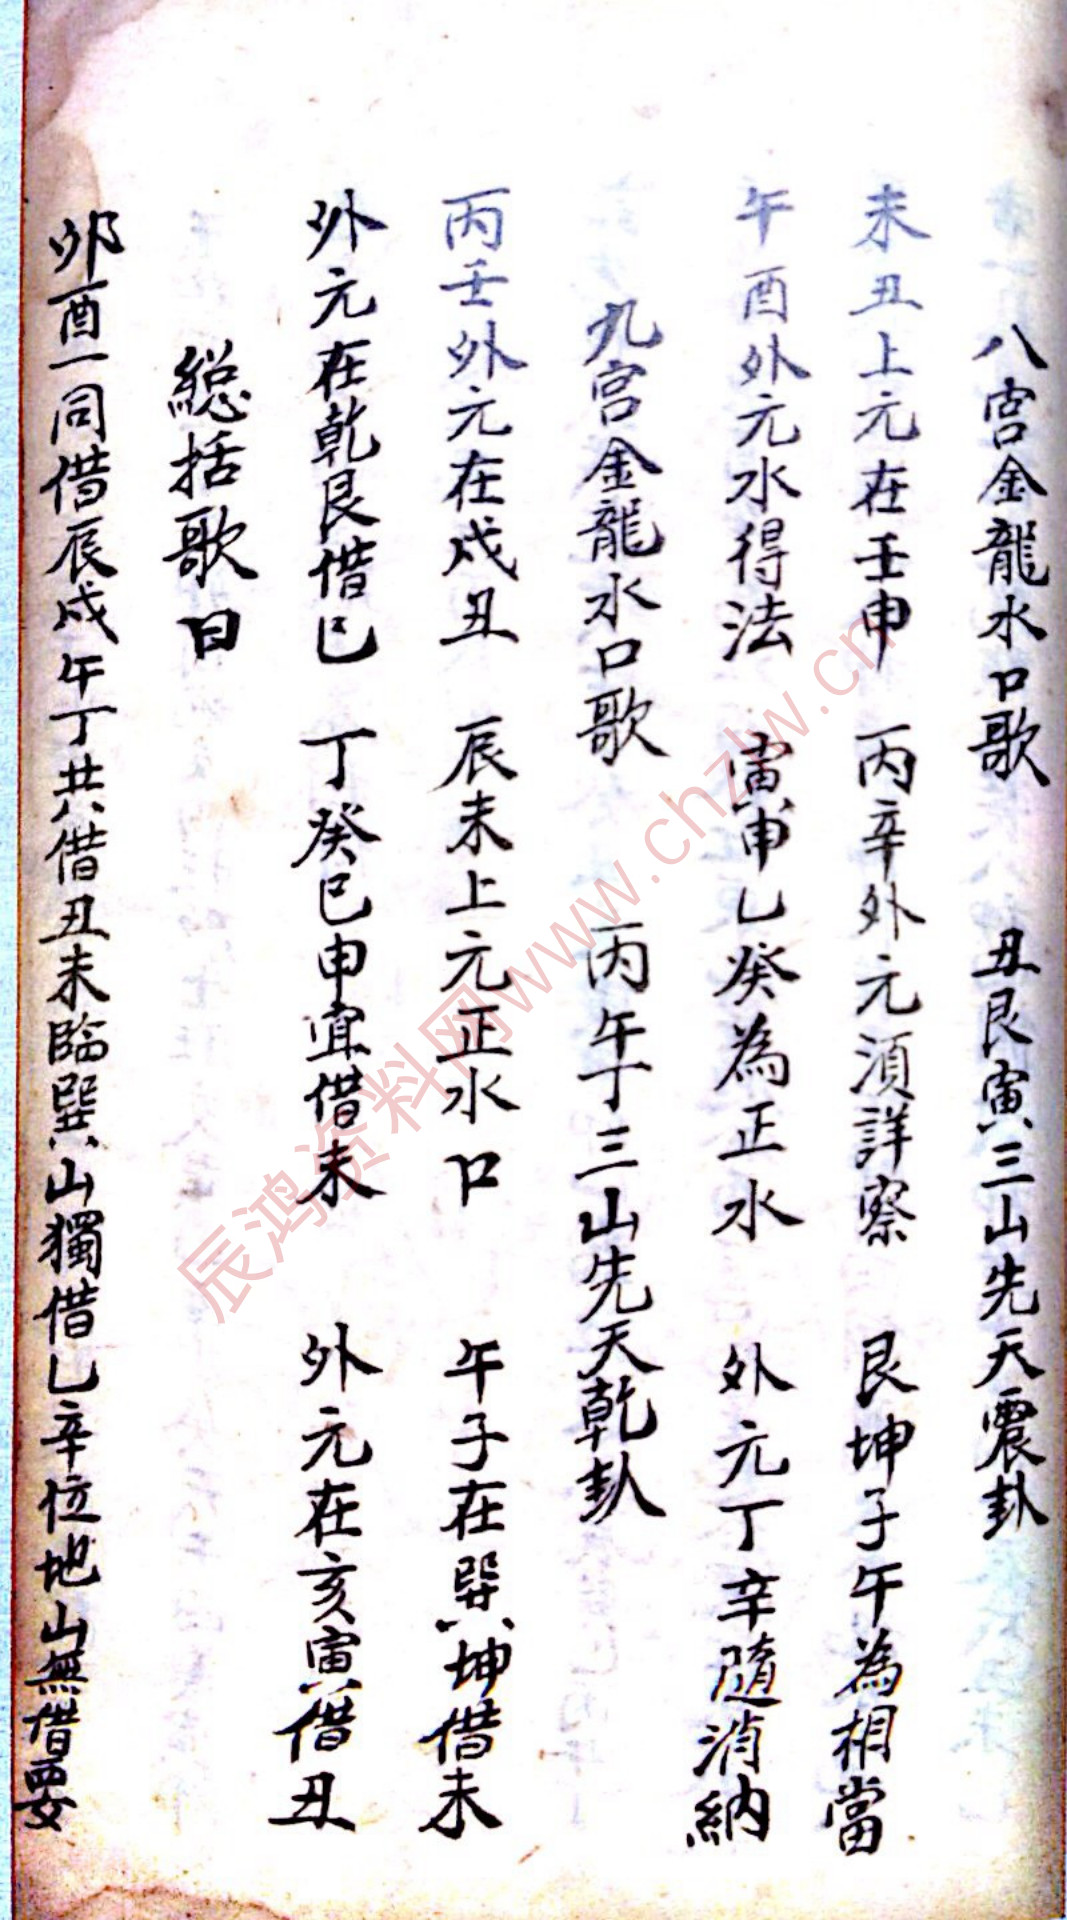 八宮金龍水口歌　丑艮寅三山先天震卦
未丑上元在壬申　丙辛外元須詳察　艮坤子午為相當
午酉外元水得法　寅申乙癸為正水　外元丁辛隨消納
九宮金龍水口歌　丙午丁三山先天乾卦
丙壬外元在戍丑　辰未上元正水口　午子在巽坤借未
外元在乾艮借巳　丁癸巳申宜借未　外元在亥寅借丑
総括歌曰
卯酉一同借辰戍午丁共借丑未臨巽山獨借乙辛位地山無借要
辰鸿资料网www.chzlw.cn